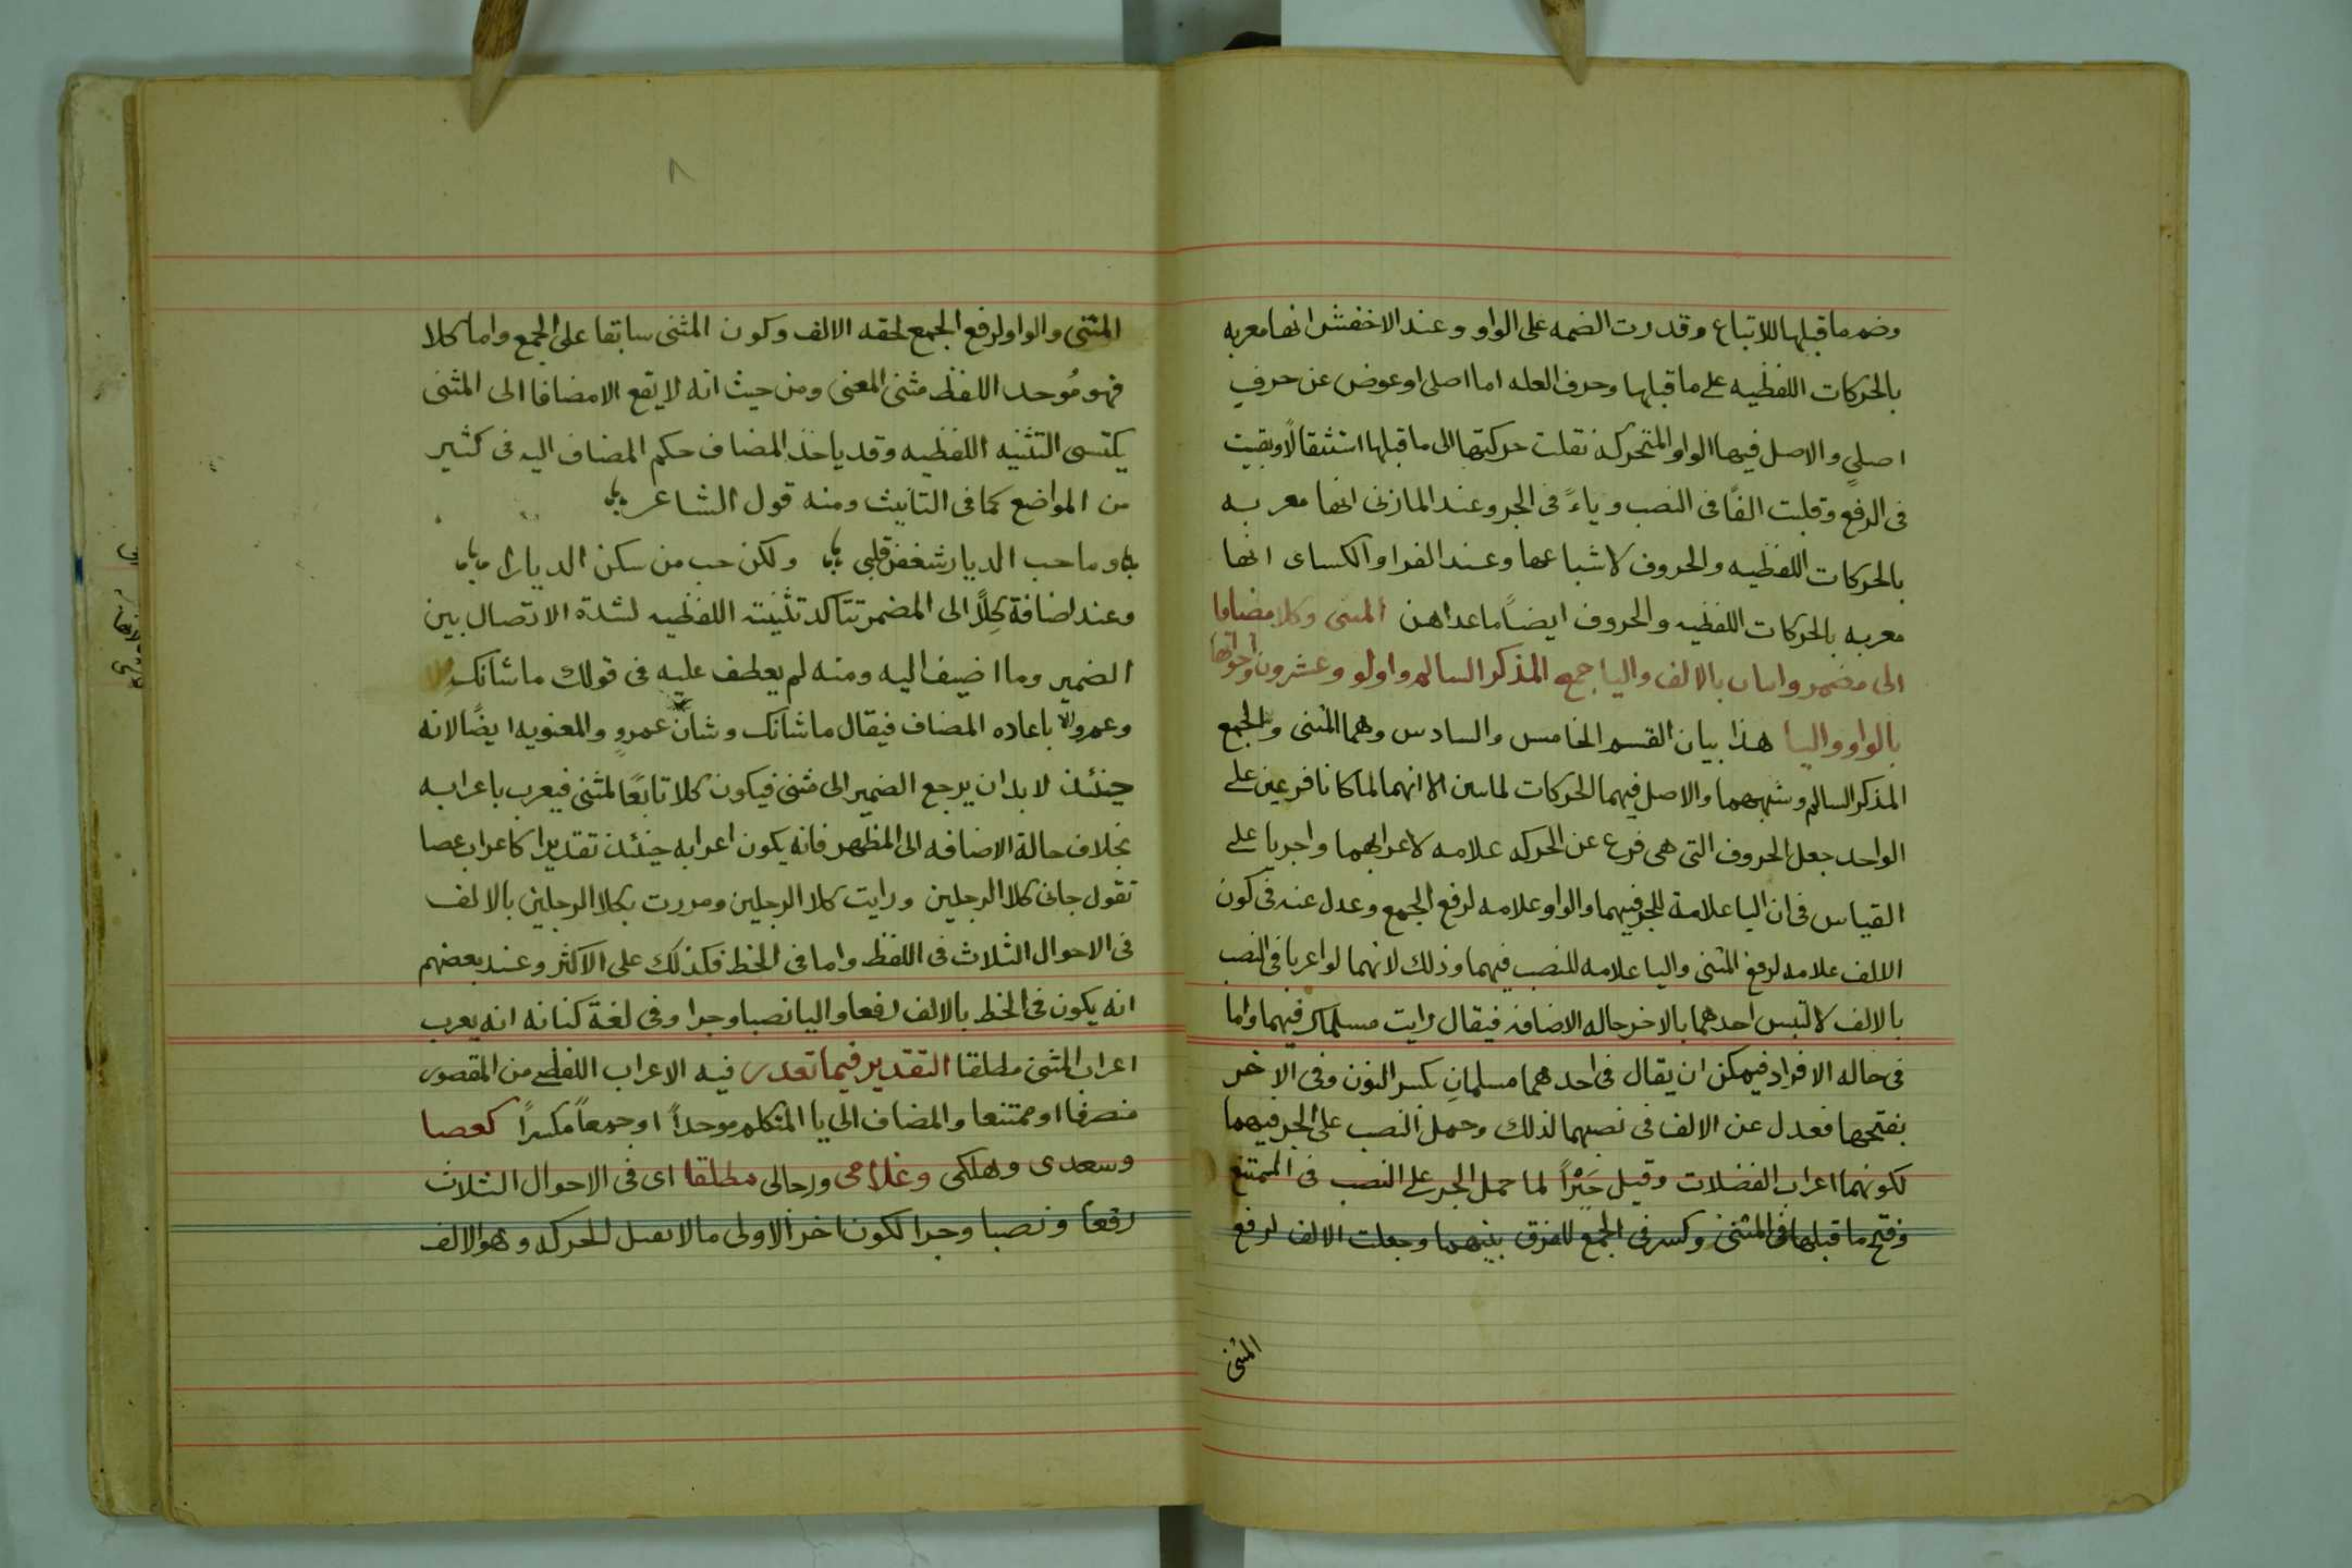 وضم ما قبلها للاتباع وقدرت الضمه على الواو وعند الاخفش انها معربه
بالحركات اللفظيه على ما قبلها وحرف العله اما اصلي او عوض عن حرفٍ
اصليٍ والاصل فيها الواو المتحركه نقلت حركتها الى ما قبلها استثقالًا وبقيت
فى الرفع وقلبت الفًا فى النصب وياءً فى الجر وعند المازنى انها معربه
بالحركات اللفظيه والحروف لاشباعها وعند الفرا والكساى انها
معربه بالحركات اللفظيه والحروف ايضًا ما عداهن المثنى وكلا مضافا
الى مضمر واثنان بالالف واليا جمع المذكر السالم واولو وعشرون واخواتها
بالواو واليا هذا بيان القسم الخامس والسادس وهما المثنى والجمع
المذكر السالم وشبههما والاصل فيهما الحركات لما الا انهما لما كانا فرعين على
الواحد جعل الحروف التى هى فرع عن الحركه علامه لاعرابهما واجريا على
القياس فى ان اليا علامة للجر فيهما والواو علامه لرفع الجمع وعدل عنه فى كون
الالف علامه لرفع المثنى واليا علامه للنصب فيهما وذلك لانهما لو اعربا فى النصب
بالالف لالتبس احدهما بالاخر حاله الاضافه فيقال رايت مسلماك فيهما واما
فى حاله الافراد فيمكن ان يقال فى احدهما مسلمانِ بكسر النون وفى الاخر
بفتحها فعدل عن الالف فى نصبهما لذلك وحمل النصب على الجر فيهما
لكونهما اعراب الفضلات وقيل جَبْرًا لما حمل الجر على النصب فى الممتنع
وفتح ما قبلها فى المثنى وكسر فى الجمع للفرق بينهما وجعلت الالف لرفع
المثنى
٨
المثنى والواو لرفع الجمع لحقه الالف وكون المثنى سابقا على الجمع واما كلا
فهو مُوحد اللفظ مثنى المعنى ومن حيث انه لا يقع الا مضافا الى المثنى
يكتسى التثنيه اللفظيه وقد ياخذ المضاف حكم المضاف اليه فى كثير
من المواضع كما فى التانيث ومنه قول الشاعر
وما حب الديار شغفن قلبى ولكن حب من سكن الديارا
وعند اضافة كِلاَ الى المضمر تتاكد تثنيته اللفظيه لشدة الاتصال بين
الضمير وما اضيف اليه ومنه لم يعطف عليه فى قولك ما شانك
وعمرو الا باعاده المضاف فيقال ما شانك وشان عمروٍ والمعنويه ايضًا لانه
حينئذ لا بد ان يرجع الضمير الى مثنى فيكون كلا تابعًا لمثنى فيعرب باعرابه
بخلاف حالة الاضافه الى المظهر فانه يكون اعرابه حينئذ تقديرا كاعراب عصا
تقول جانى كلا الرجلين ورايت كلا الرجلين ومررت بكلا الرجلين بالالف
فى الاحوال الثلاث فى اللفظ واما فى الخط فكذلك على الاكثر وعند بعضهم
انه يكون فى الخط بالالف رفعا واليا نصبا وجرا وفى لغة كنانه انه يعرب
اعراب المثنى مطلقا التقدير فيما تعذر فيه الاعراب اللفظى من المقصور
منصرفا او ممتنعا والمضاف الى يا المتكلم موحداً او جمعاً مكسراً كعصا
وسعدى وهلكى وغلامى ورجالى مطلقا اى فى الاحوال الثلاث
رفعا ونصبا وجرا لكون اخر الاولى ما لا يقبل للحركه وهو الالف